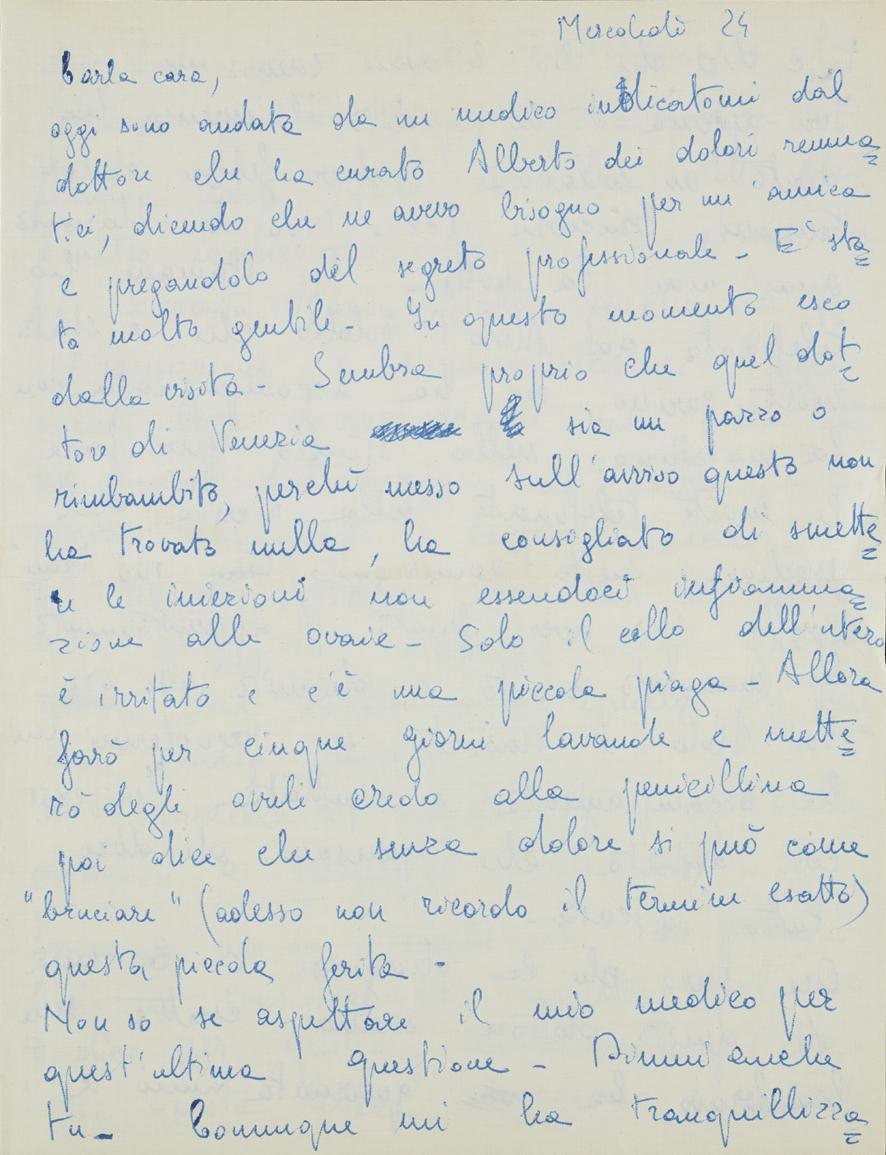 Mercoledì 24
Carla cara,
oggi sono andata da un medico indicatomi dal
dottore che ha curato Alberto dei dolori reuma=
tici, dicendo che ne avevo bisogno per un'amica
e pregandolo del segreto professionale - E' sta=
to molto gentile - In questo momento esco
dalla visita - Sembra proprio che quel dot=
tore di Venezia sia un pazzo o
rimbambito, perchè messo sull'avviso questo non
ha trovato nulla, ha consigliato di smette=
re le iniezioni non essendoci infiamma=
zione alle ovaie - Solo il collo dell'utero
è irritato e c'è una piccola piaga - Allora
farò per cinque giorni lavande e mette=
rò degli ovuli credo alla penicillina
poi dice che senza dolore si può come
"bruciare" (adesso non ricordo il termine esatto)
questa piccola ferita -
Non so se aspettare il mio medico per
quest'ultima questione - Dimmi anche
tu - Comunque mi ha tranquillizza=